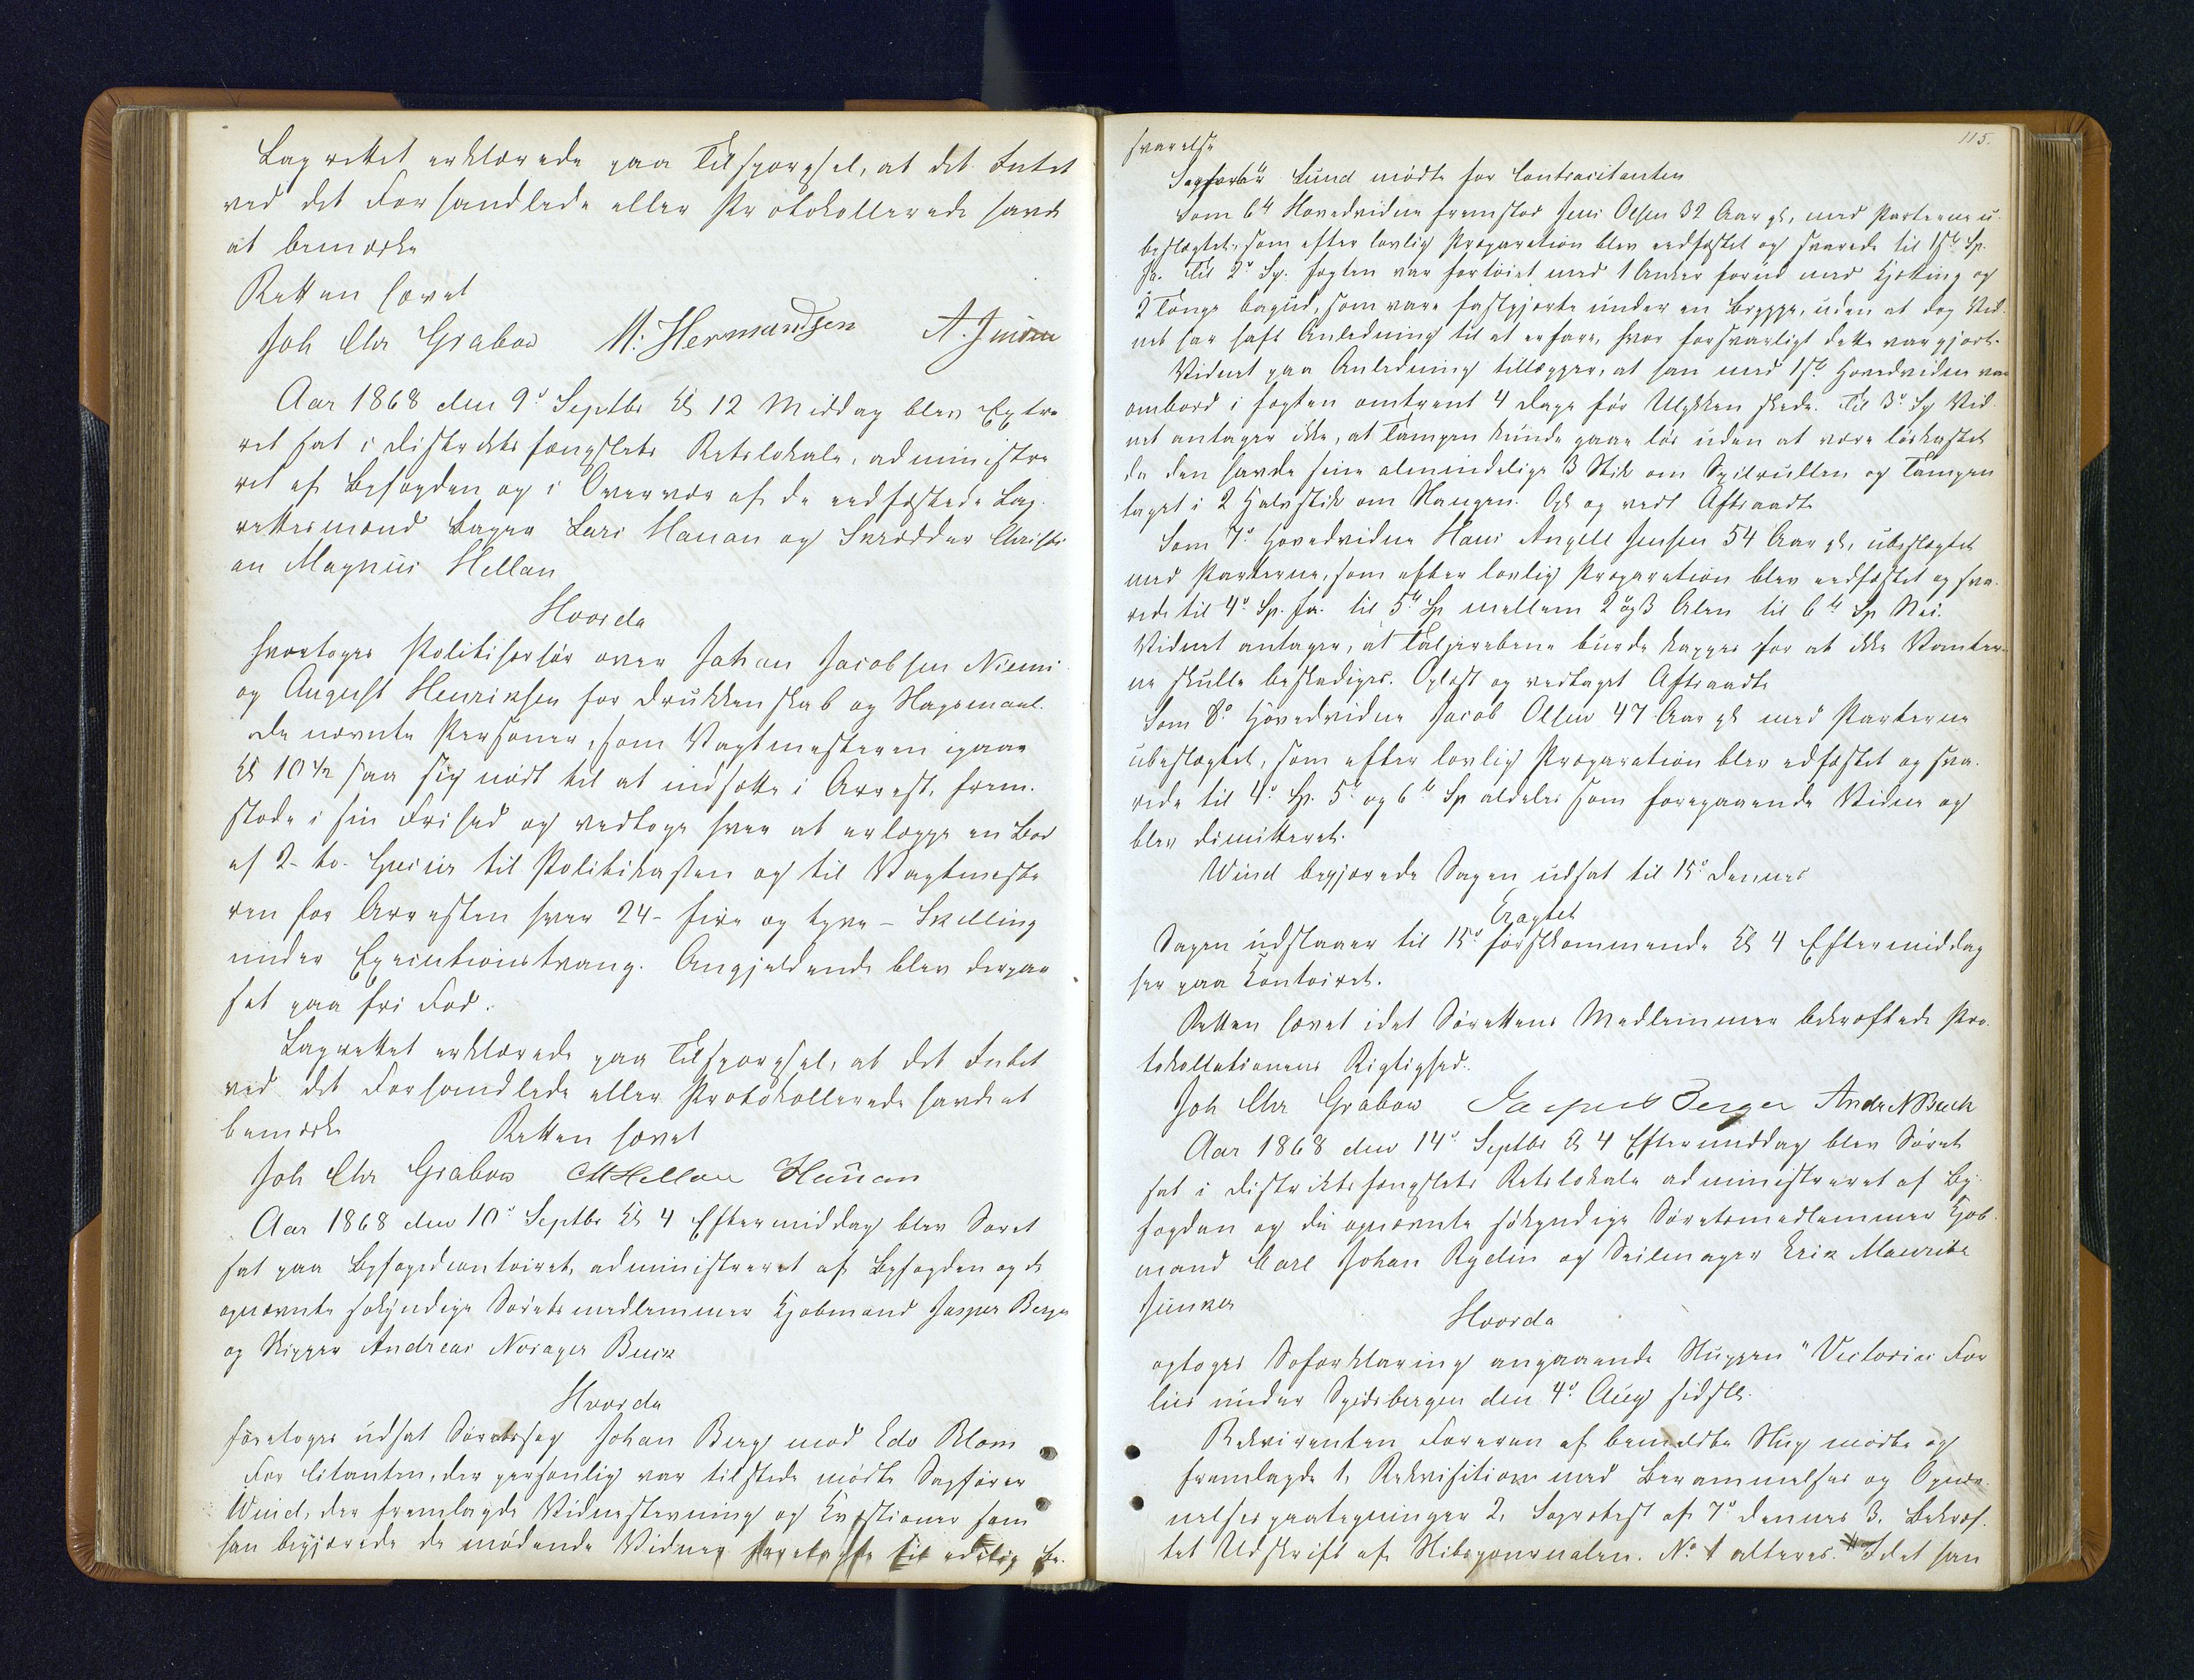 Lagrettet erklærede paa Tilspørgsel, at det Intet
ved det Forhandlede eller Protokollerede havde
at bemærke
Retten hævet
Joh Chr Grabow M. Hermandsen A.
Aar 1868 den 9de Septbr Kl 12 Middag blev Extra
ret sat i Distriktsfængslets Retslokale, administre
ret af Byfogden og i Overvær af de eedfæstede Lag
rettesmænd Bager Lars Hanan og Skrædder Christi
an Magnus Hellan
Hvorda
foretoges Politiforhør over Johan Jacobsen Niemi
og August Henriksen for Drukkenskab og Slagsmaal.
De nævnte Personer, som Vagtmesteren igaar
Kl 10 1/2 saa sig nødt til at indsætte i Arrest, frem-
stode i sin Frihed og vedtoge hver at erlægge en Bod
af 2- to- Spesier til Politikassen og til Vagtmeste
ren for Arresten hver 24- fire og tyve - Skilling
under Executionstvang. Angjeldende blev derpaa
sat paa fri Fod.
Lagrettet erklærede paa Tilspørgsel, at det Intet
ved det Forhandlede eller Protokollerede havde at
bemærke Retten hævet
Joh Chr Grabow CMHellan Hanan
Aar 1868 den 10de Septbr Kl 4 Eftermiddag blev Søret
sat paa Byfogedcontoiret, administreret af Byfogden og de
opnævnte søkyndige Søretsmedlemmer Kjøbmand Jesper Berger
og Skipper Andreas Norager Buck
Hvorda
foretoges udsat Søretssag Johan Berg mod Edv Blom
For Citanten, der personlig var tilstede mødte Sagfører
Wind, der fremlagde Vidnestevning og Qvæstioner som
han begjærede de mødende Vidner foretagte til edelig Be-
115.
svarelse
Sagfører Lund mødte for Contracitanten
Som 6te Hovedvidne fremstod Jens Olsen 32 Aar gl, med Parterne u-
beslægtet, som efter lovlig Præparation blev eedfæstet og svarede til 1ste Sp.
Ja. Til 2de Sp. Jagten var fortøiet med 1 Anker forud med Kjætting og
2 Touge bagud, som vare fastgjorte under en Brygge, uden at dog Vid-
net har havt Anledning til at erfare, hvor forsvarligt dette var gjort.
Vidnet paa Anledning tillægger, at han med 1ste Hovedvidne var
ombord i Jagten omtrent 4 Dage før Ulykken skede. Til 3de Sp Vid-
net antager ikke, at Tampen kunde gaae løs uden at være løskastet
da den havde sine almindelige 3 Stik om Spilrullen og Tampen
taget i 2 Halvstik om Stangen. Opl og vedt Aftraadte
Som 7de Hovedvidne Hans Angell Jensen 54 Aar gl, ubeslægtet
med Parterne, som efter lovlig Præparation blev eedfæstet og sva-
rede til 4de Sp. Ja. til 5te Sp mellem 2 og 3 Alen til 6te Sp Nei.
Vidnet antager, at Taljerebene burde kappes for at ikke Vanter-
ne skulle beskadiges. Oplæst og vedtaget Aftraadte
Som 8de Hovedvidne Jacob Olsen 47 Aar gl med Parterne
ubeslægtet, som efter lovlig Præparation blev edfæstet og sva-
rede til 4de Sp. 5te og 6te Sp aldeles som foregaaende Vidne og
blev dimitteret.
Wind begjærede Sagen udsat til 15de dennes
Eragtet
Sagen udstaaer til 15de førstkommende Kl 4 Eftermiddag
her paa Contoiret.
Retten hævet idet Sørettens Medlemmer bekræftede Pro-
tokollationens Rigtighed.
Joh Chr Grabow Jesper Berger Andr N Buck
Aar 1868 den 14de Septbr Kl 4 Eftermiddag blev Søret
sat i Distriktsfængslets Retslokale administreret af By-
fogden og de opnævnte søkyndige Søretsmedlemmer Kjøb-
mand Carl Johan Rydin og Seilmager Erik Mauritz
Junker
Hvorda
optoges Søforklaring angaaende Sluppen "Victorias For
liis under Spidsbergen den 4de Aug sidstl.
Rekvirenten Føreren af bemeldte Slup mødte og
fremlagde 1, Rekvisition med Berammelses og Opnæv-
nelsespaategninger 2, Søprotest af 7de dennes 3, Bekræf-
tet Udskrift af Skibsjournalen. No 1 alteres. Idet han